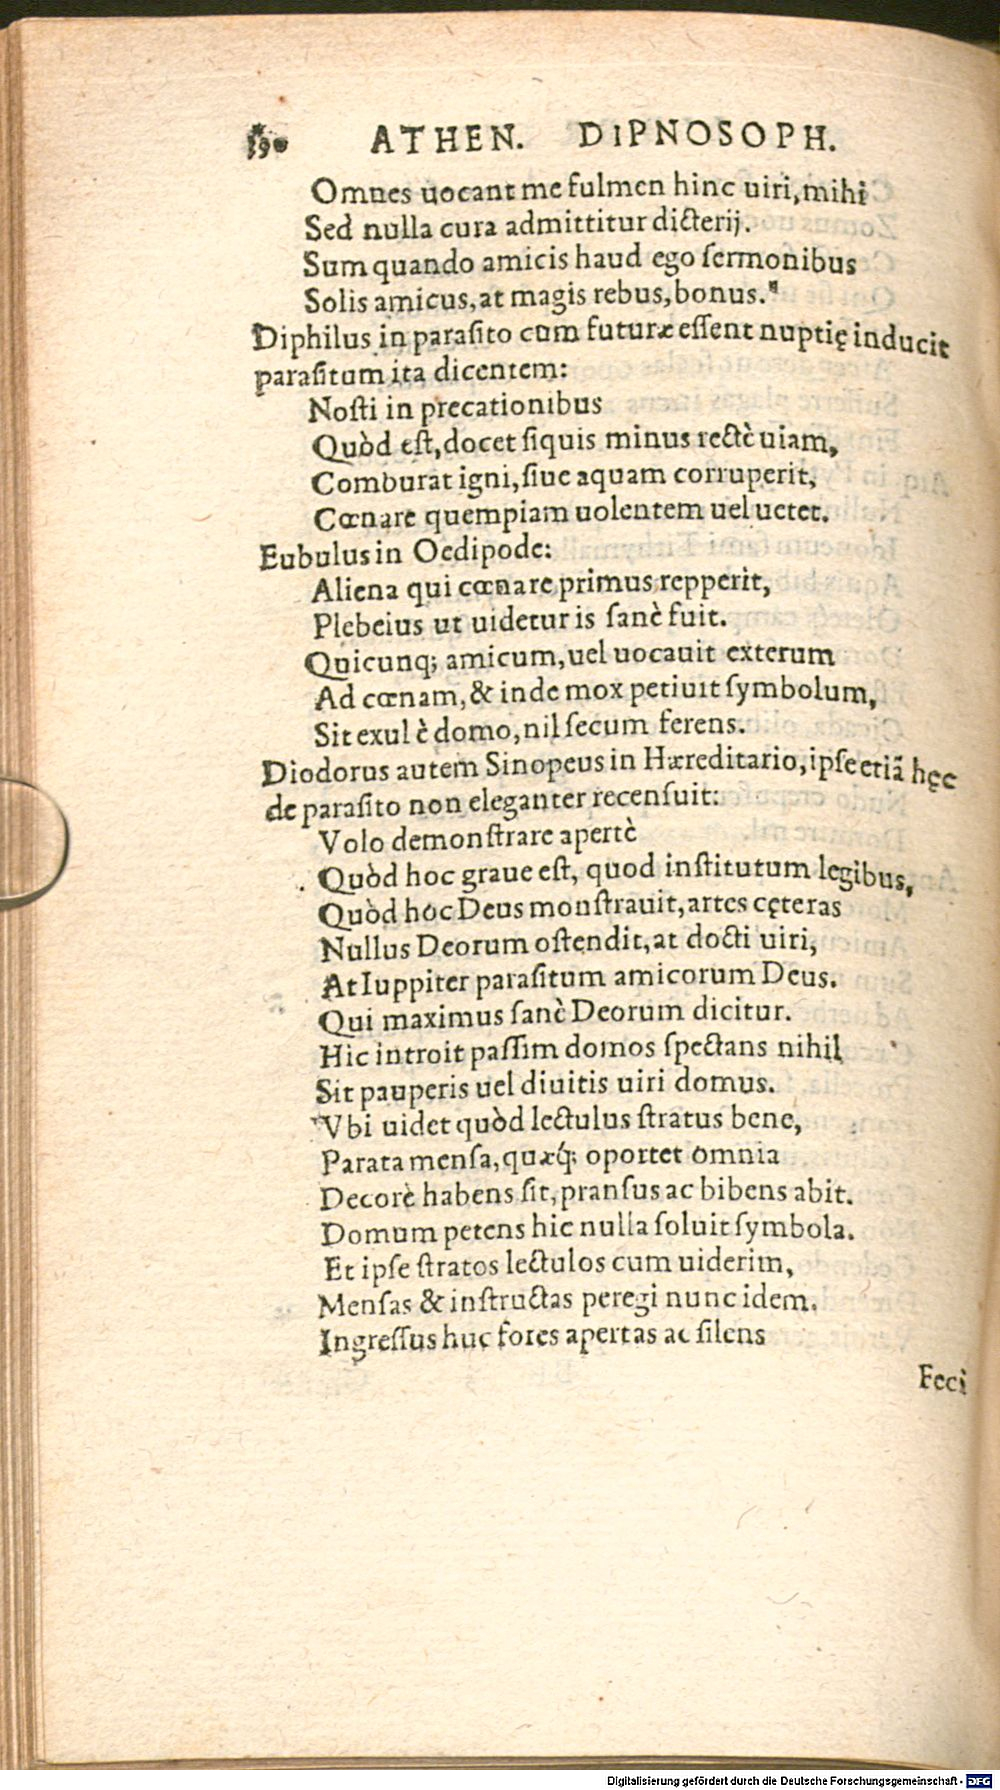 ATHEN. DIPNOSOPH.
Omnes uocant me fulmen hinc uiri, mihi
Sed nulla cura admittitur dicterij.
Sum quando amicis haud ego sermonibus
Solis amicus, at magis rebus, bonus.
Diphilus in parasito cum futuræ essent nuptię inducit
parasitum ita dicentem:
Nosti in precationibus
Quòd est, docet siquis minus rectè uiam,
Comburat igni, siue aquam corruperit,
Cœnare quempiam uolentem uel uetet.
Eubulus in Oedipode:
Aliena qui cœnare primus repperit,
Plebeius ut uidetur is sanè fuit.
Quicunq; amicum, uel uocauit exterum
Ad cœnam, & inde mox petiuit symbolum,
Sit exul è domo, nil secum ferens.
Diodorus autem Sinopeus in Hæreditario, ipse etiã hęc
de parasito non eleganter recensuit:
Volo demonstrare apertè
Quòd hoc graue est, quod institutum legibus,
Quòd hoc Deus monstrauit, artes cęteras
Nullus Deorum ostendit, at docti uiri,
At Iuppiter parasitum amicorum Deus.
Qui maximus sanè Deorum dicitur.
Hic introit passim domos spectans nihil
Sit pauperis uel diuitis uiri domus.
Vbi uidet quòd lectulus stratus bene,
Parata mensa, quæq́; oportet omnia
Decorè habens sit, pransus ac bibens abit.
Domum petens hic nulla soluit symbola.
Et ipse stratos lectulos cum uiderim,
Mensas & instructas peregi nunc idem.
Ingressus huc fores apertas ac silens
Feci
Digitalisierung gefördert durch die Deutsche Forschungsgemeinschaft - DFG